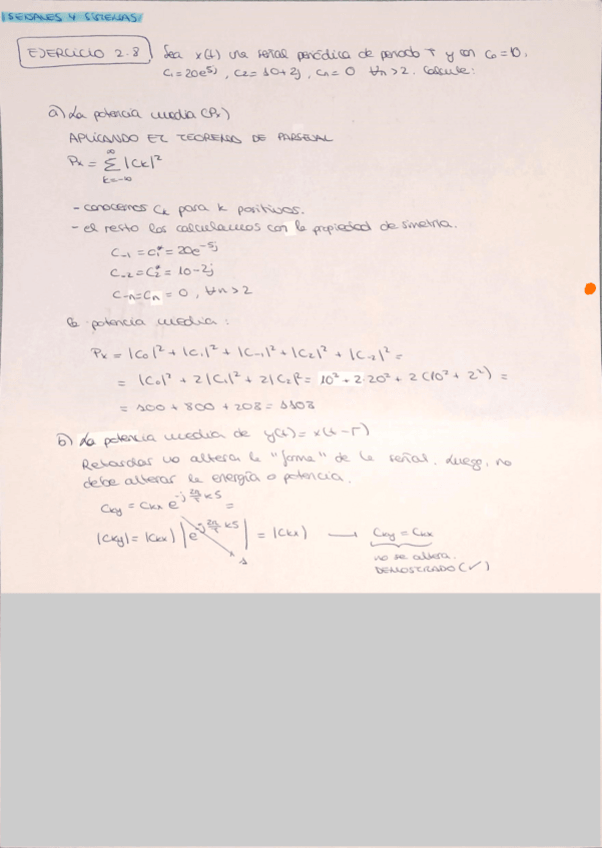 SEÑALES Y SISTEMAS
EJERCICIO 2.8 Sea x(t) una señal periódica de periodo T y con C₀ = 10,
C₁ = 20e^{5j}, C₂ = 10+2j, Cₙ = 0 ∀n>2. Calcule:
a) La potencia media (Pₓ)
APLICANDO EL TEOREMA DE PARSEVAL
Pₓ = ∑_{k=-∞}^{∞} |Cₖ|²
- conocemos Cₖ para k positivos.
- el resto los calculamos con la propiedad de simetría.
C₋₁ = C₁* = 20e^{-5j}
C₋₂ = C₂* = 10-2j
C₋ₙ = Cₙ = 0, ∀n>2
la potencia media:
Pₓ = |C₀|² + |C₁|² + |C₋₁|² + |C₂|² + |C₋₂|² =
= |C₀|² + 2|C₁|² + 2|C₂|² = 10² + 2·20² + 2(10² + 2²) =
= 100 + 800 + 208 = 1108
b) La potencia media de y(t) = x(t-5)
Retardar no altera la "forma" de la señal. Luego, no
debe alterar la energía o potencia.
C_{ky} = C_{kx} e^{-j 2π/T k5} =
|C_{ky}| = |C_{kx}| |e^{-j 2π/T k5}| = |C_{kx}| → C_{ky} = C_{kx}
1
no se altera.
DEMOSTRADO (✓)